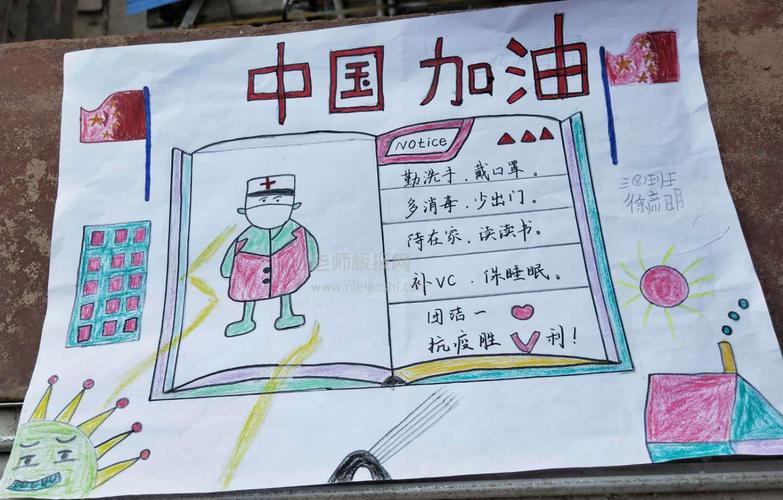 中国 加油
Notice
勤洗手、戴口罩。
多消毒、少出门。
待在家、读读书。
补VC、保睡眠。
团结一
抗疫胜利!
三(2)班
徐彦明
老师板报网
www.nielaoshi.com